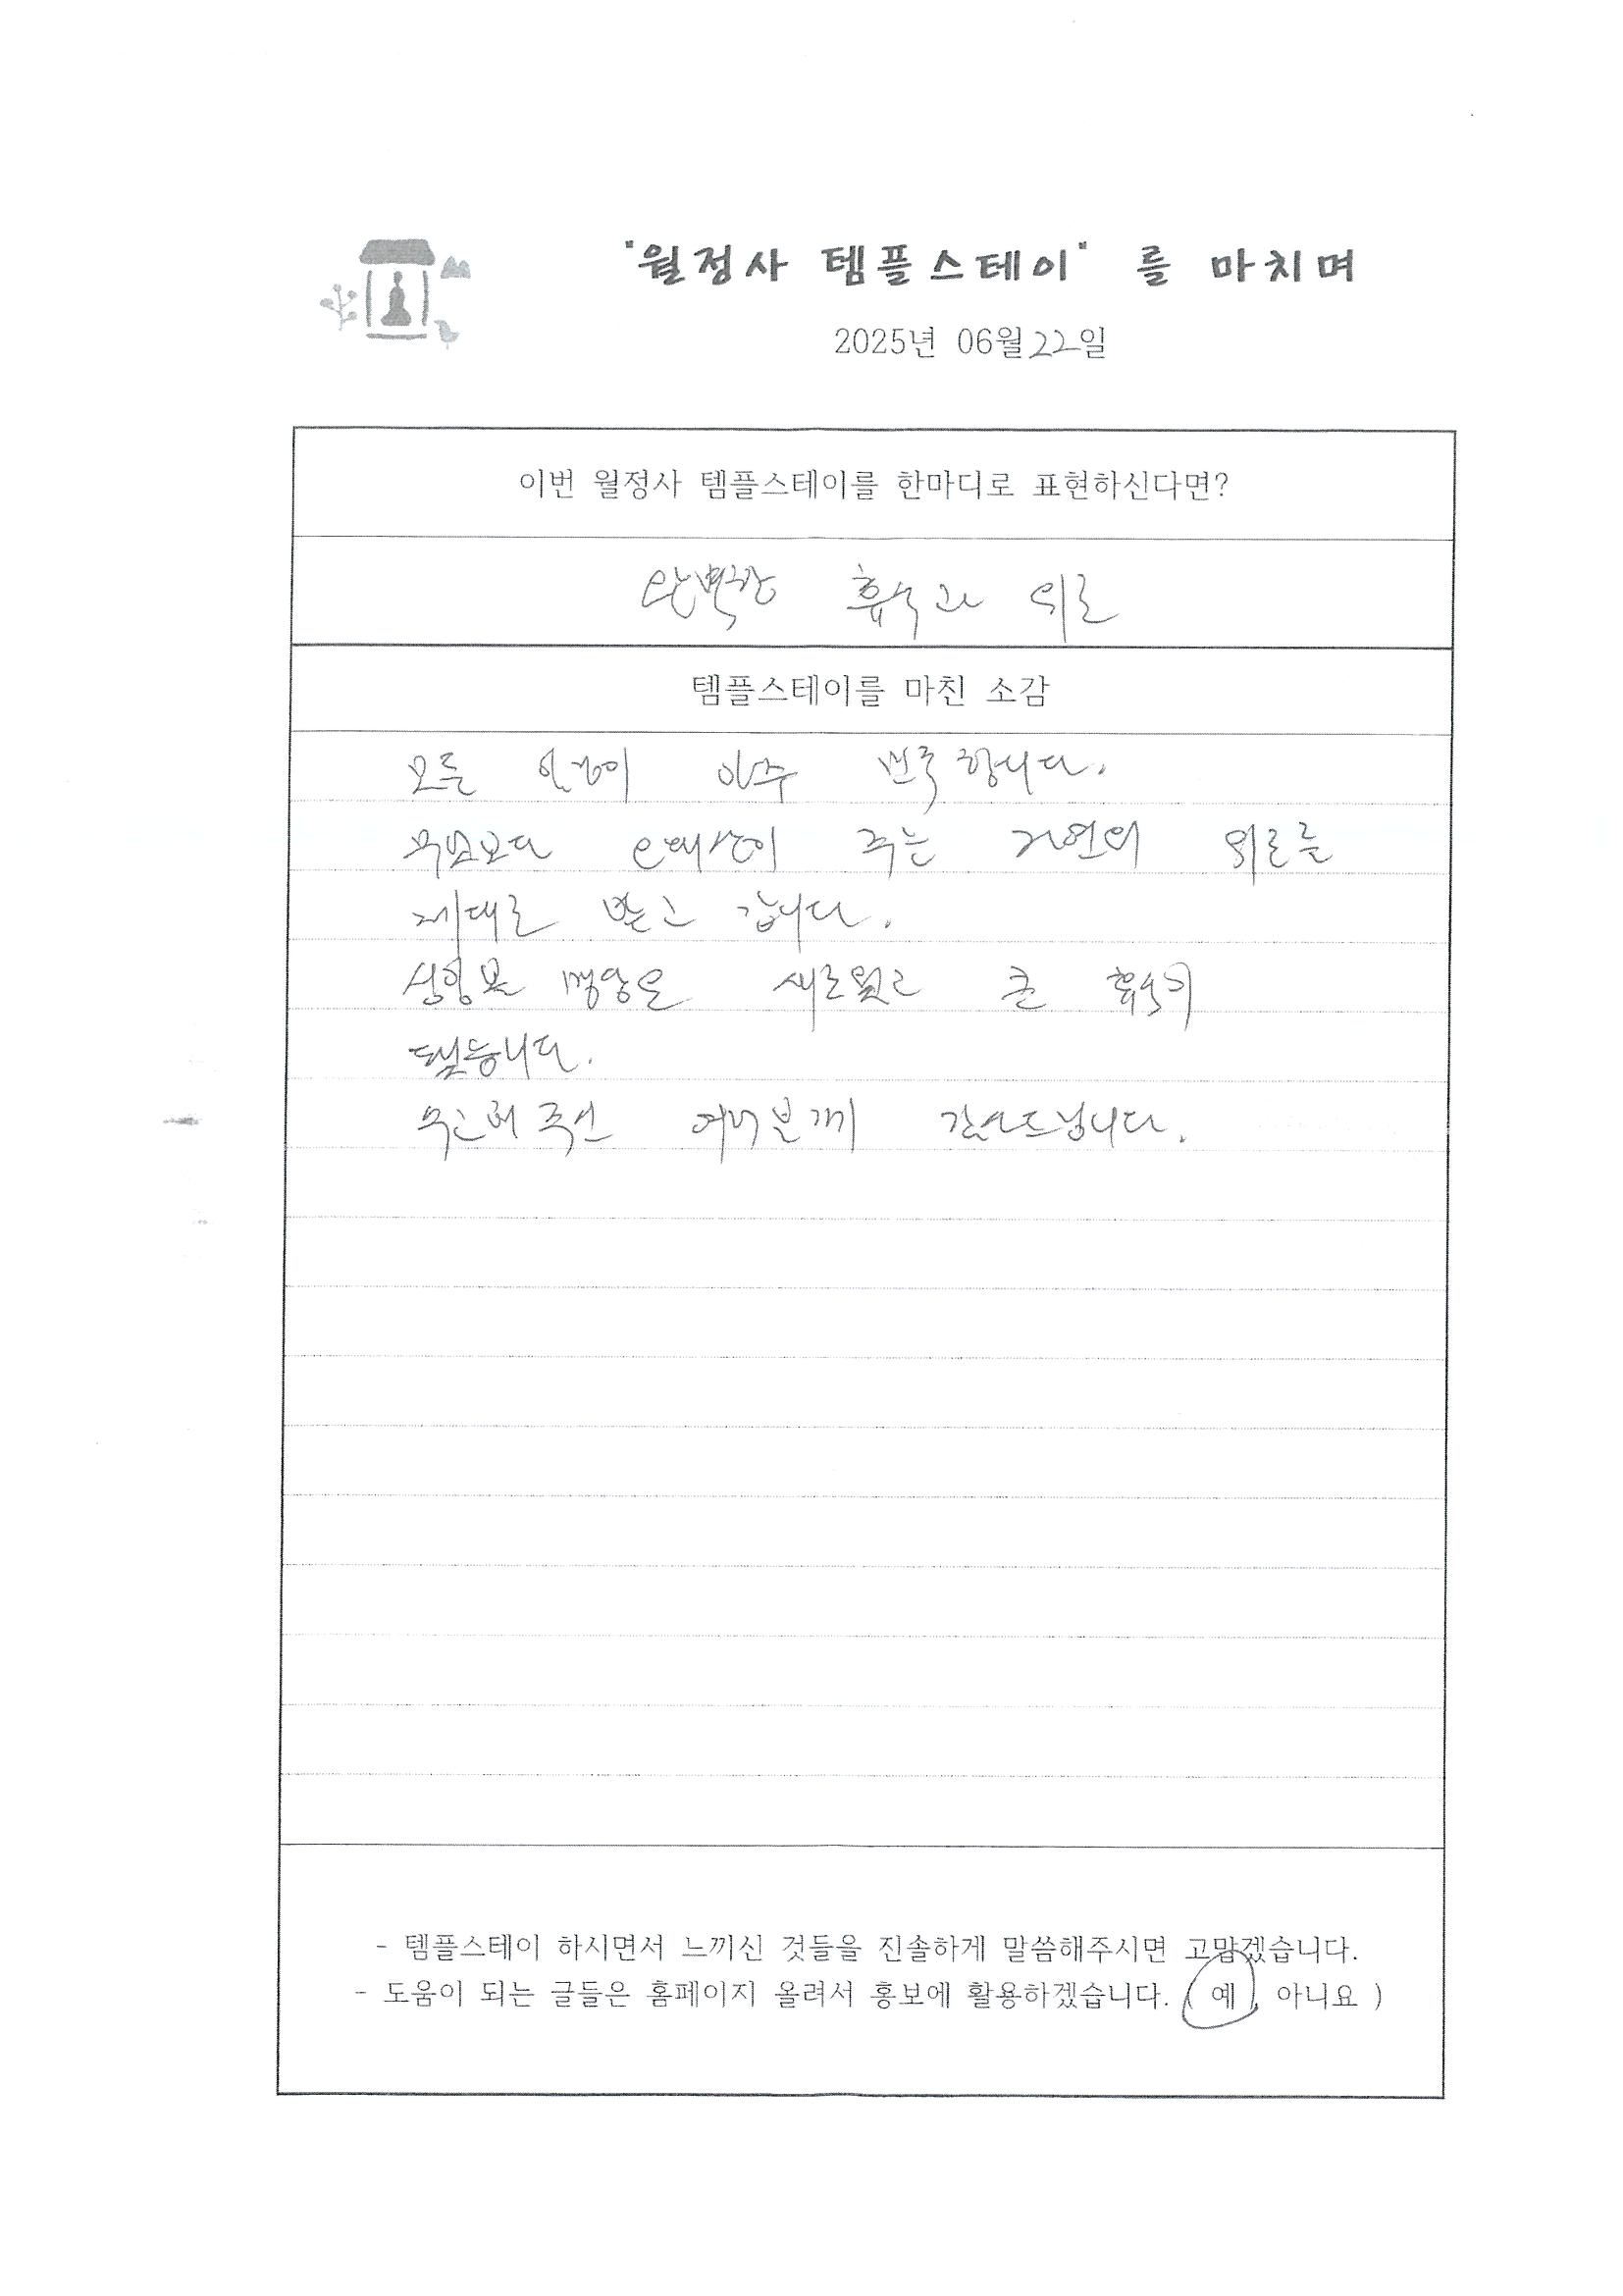 "월정사 템플스테이"를 마치며
2025년 06월 22일
이번 월정사 템플스테이를 한마디로 표현하신다면?
완벽한 휴식과 위로
템플스테이를 마친 소감
모든 일정이 아주 만족합니다.
무엇보다 오대산이 주는 자연의 위로를
제대로 받고 갑니다.
싱잉볼 명상은 새로웠고 큰 휴식이
됐습니다.
주신 여러분께 감사드립니다.
- 템플스테이 하시면서 느끼신 것들을 진솔하게 말씀해주시면 고맙겠습니다.
- 도움이 되는 글들은 홈페이지 올려서 홍보에 활용하겠습니다. ( 예 , 아니요 )